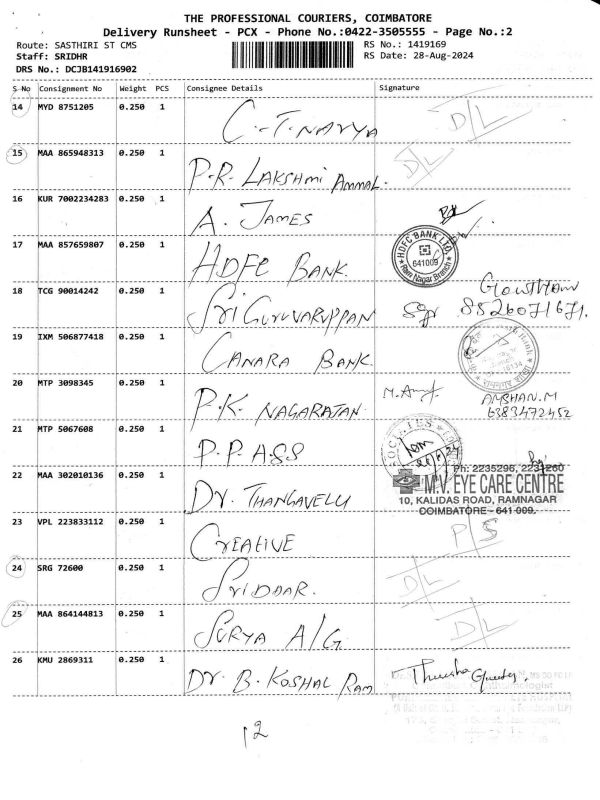 THE PROFESSIONAL COURIERS, COIMBATORE
Delivery Runsheet - PCX - Phone No.:0422-3505555 - Page No.:2
Route: SASTHIRI ST CMS RS No.: 1419169
Staff: SRIDHR RS Date: 28-Aug-2024
DRS No.: DCJB141916902
S No Consignment No Weight PCS Consignee Details Signature
14 MYD 8751205 0.250 1 C.T.NAVYA D/L
15 MAA 865948313 0.250 1 P.R. LAKSHMI AMMAL. D/L
16 KUR 7002234283 0.250 1 A. JAMES
17 MAA 857659807 0.250 1 HDFC BANK. HDFC BANK LTD. 641009 Ram Nagar Branch
18 TCG 90014242 0.250 1 SRI GURUVARUPPAN GOWTHAM
8526071671.
19 IXM 506877418 0.250 1 CANARA BANK.
20 MTP 3098345 0.250 1 P.K. NAGARATAN. AMSHAN.M
6383472452
21 MTP 5067608 0.250 1 P.P. ASS
22 MAA 302010136 0.250 1 Dr. THANGAVELU Ph: 2235296, 2231260
M.V. EYE CARE CENTRE
10, KALIDAS ROAD, RAMNAGAR
COIMBATORE - 641 009.
23 VPL 223833112 0.250 1 CREATIVE P/S
24 SRG 72600 0.250 1 SRIDAAR. D/L
25 MAA 864144813 0.250 1 SURYA A/G D/L
26 KMU 2869311 0.250 1 Dr B. KOSHAL RAM
12